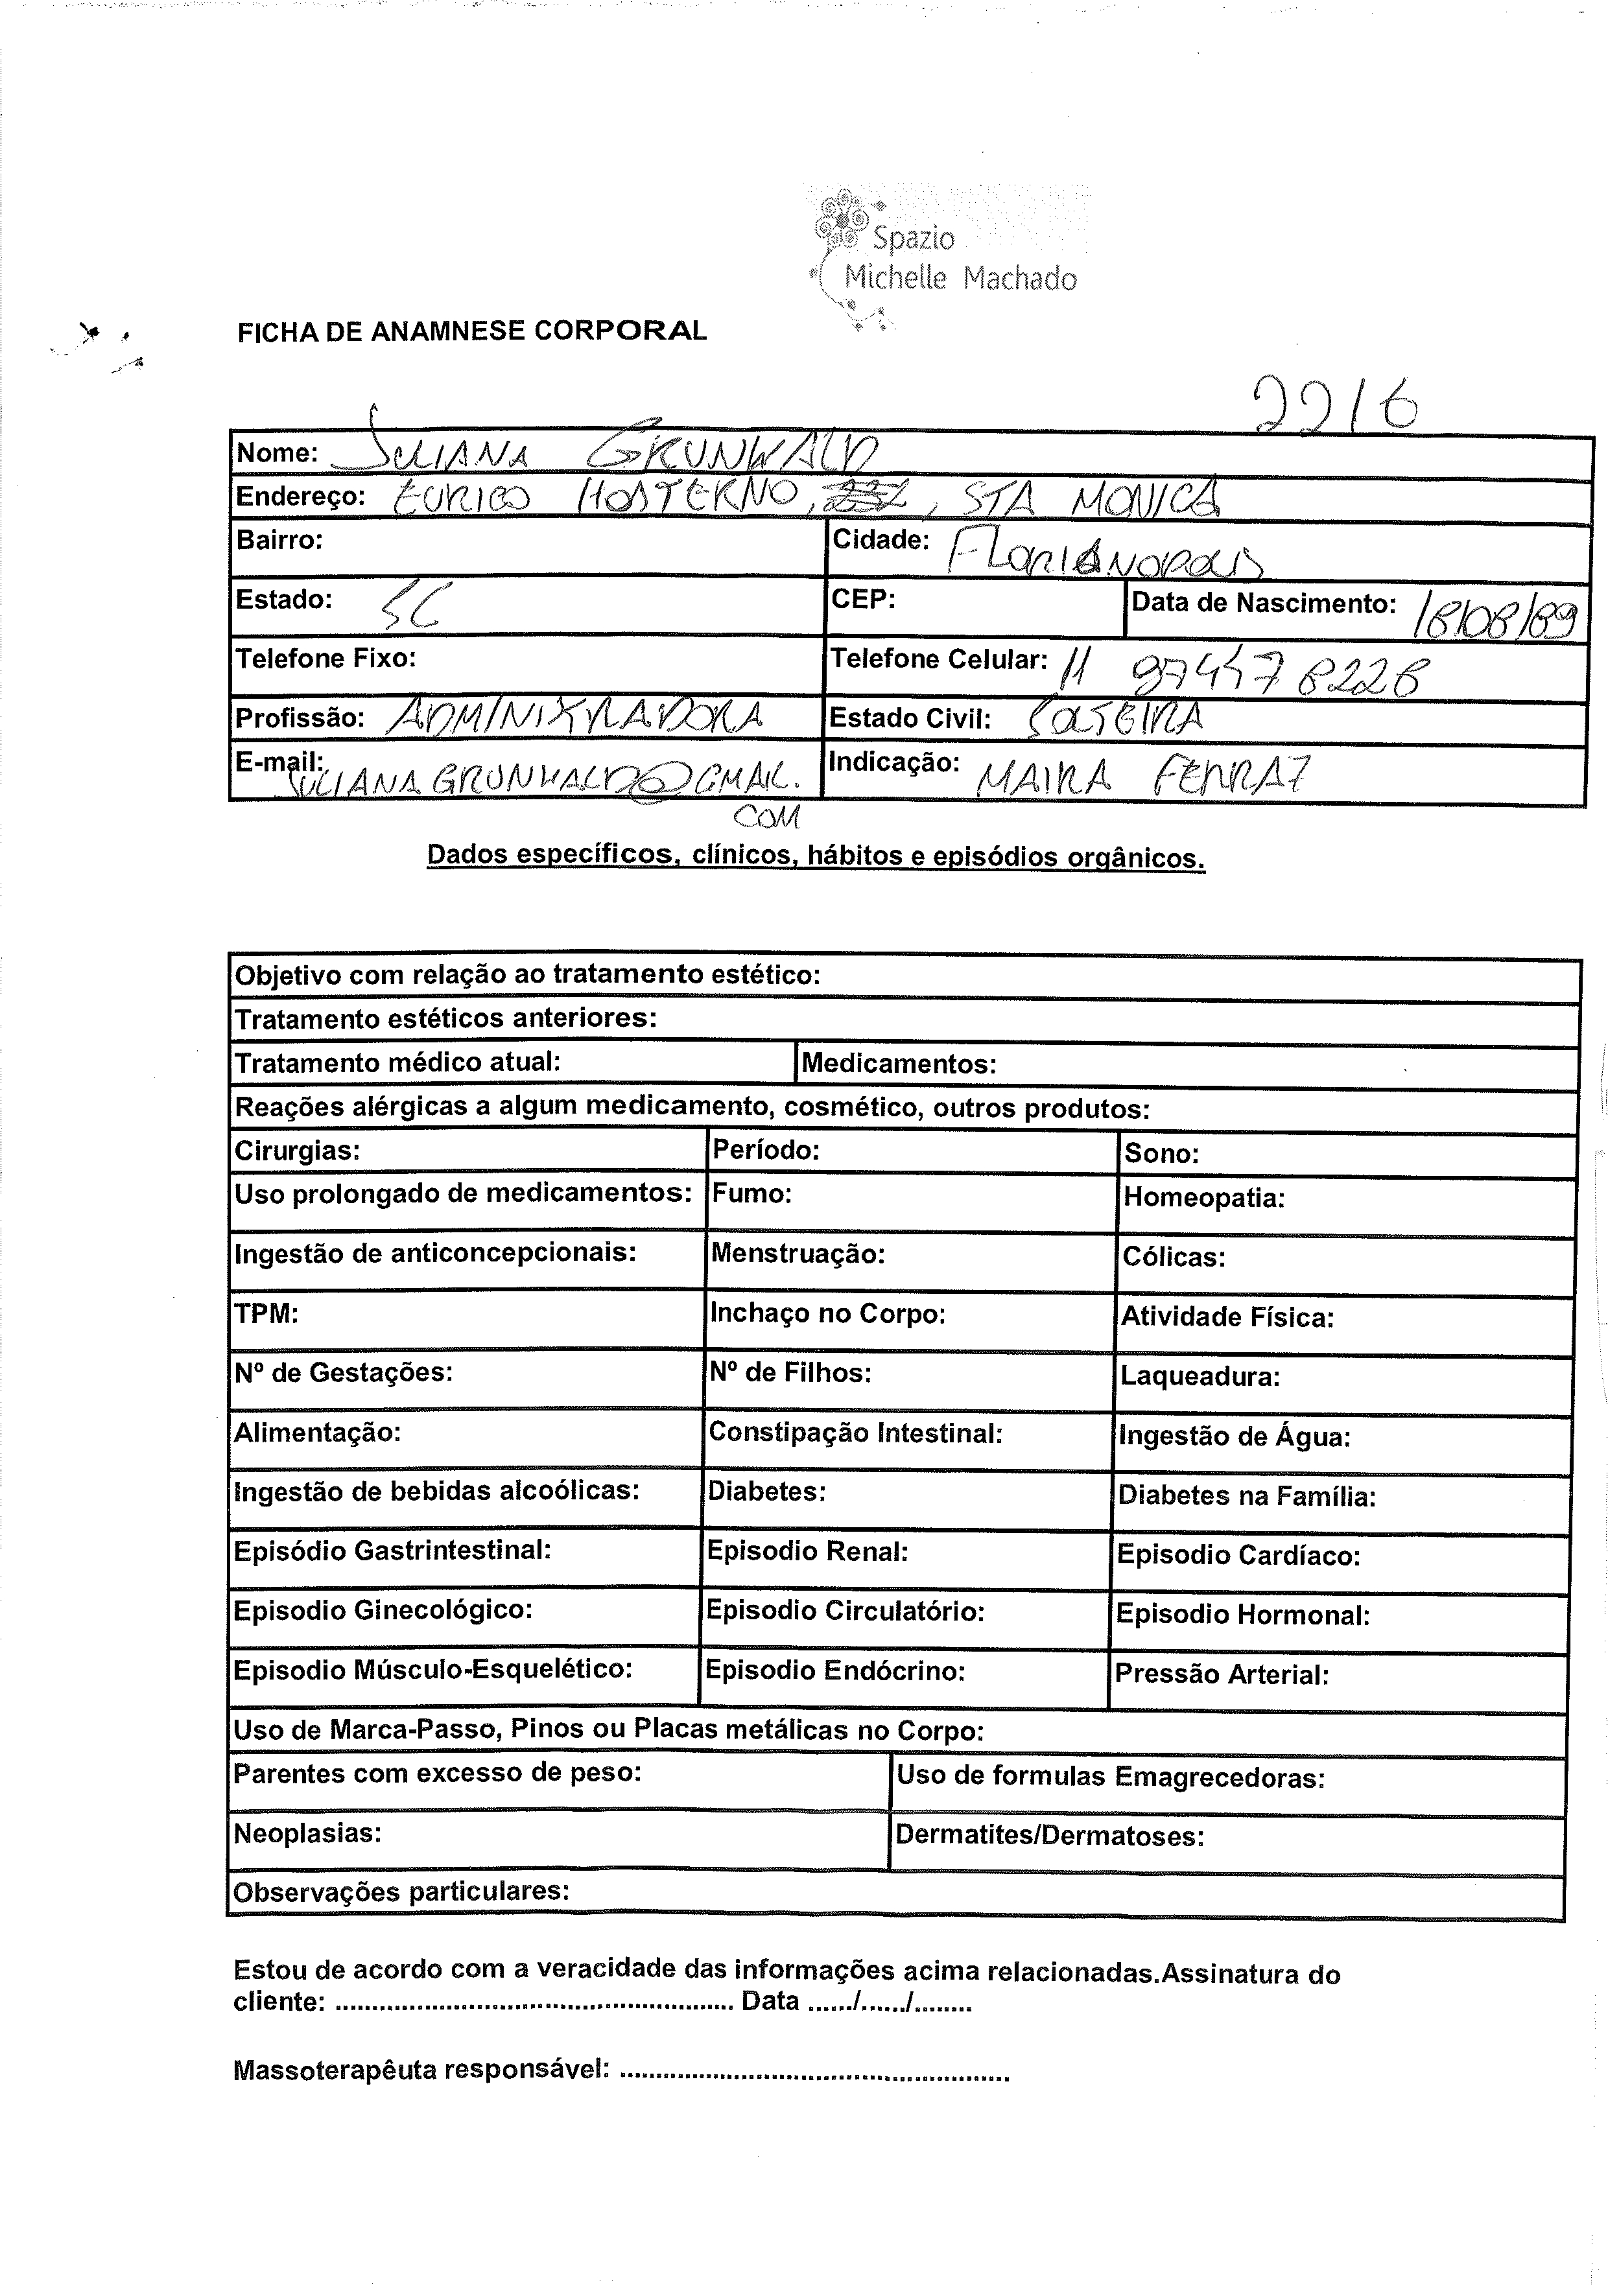 Spazio
Michelle Machado
FICHA DE ANAMNESE CORPORAL
2216
Nome: JULIANA GRUNWALD
Endereço: EURICO HOSTERNO, , STA MONICA
Bairro: Cidade: FLORIANOPOLIS
Estado: SC CEP: Data de Nascimento: 18/08/89
Telefone Fixo: Telefone Celular: 11 97447 8228
Profissão: ADMINISTRADORA Estado Civil: SOLTEIRA
E-mail: JULIANAGRUNWALD@GMAIL. Indicação: MAIRA FERRAZ
COM
Dados específicos, clínicos, hábitos e episódios orgânicos.
Objetivo com relação ao tratamento estético:
Tratamento estéticos anteriores:
Tratamento médico atual: Medicamentos:
Reações alérgicas a algum medicamento, cosmético, outros produtos:
Cirurgias: Período: Sono:
Uso prolongado de medicamentos: Fumo: Homeopatia:
Ingestão de anticoncepcionais: Menstruação: Cólicas:
TPM: Inchaço no Corpo: Atividade Física:
Nº de Gestações: Nº de Filhos: Laqueadura:
Alimentação: Constipação Intestinal: Ingestão de Água:
Ingestão de bebidas alcoólicas: Diabetes: Diabetes na Família:
Episódio Gastrintestinal: Episodio Renal: Episodio Cardíaco:
Episodio Ginecológico: Episodio Circulatório: Episodio Hormonal:
Episodio Músculo-Esquelético: Episodio Endócrino: Pressão Arterial:
Uso de Marca-Passo, Pinos ou Placas metálicas no Corpo:
Parentes com excesso de peso: Uso de formulas Emagrecedoras:
Neoplasias: Dermatites/Dermatoses:
Observações particulares:
Estou de acordo com a veracidade das informações acima relacionadas.Assinatura do
cliente: ........................................................ Data ....../....../........
Massoterapêuta responsável: ........................................................